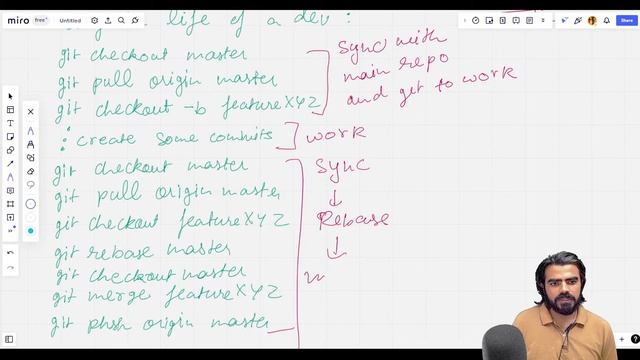 miro free Untitled
Share
life of a dev :
git checkout master
git pull origin master
git checkout -b featureXYZ
: create some commits
git checkout master
git pull origin master
git checkout featureXYZ
git rebase master
git checkout master
git merge featureXYZ
git phsh origin master
Sync with
main repo
and get to work
work
Sync
↓
Rebase
↓